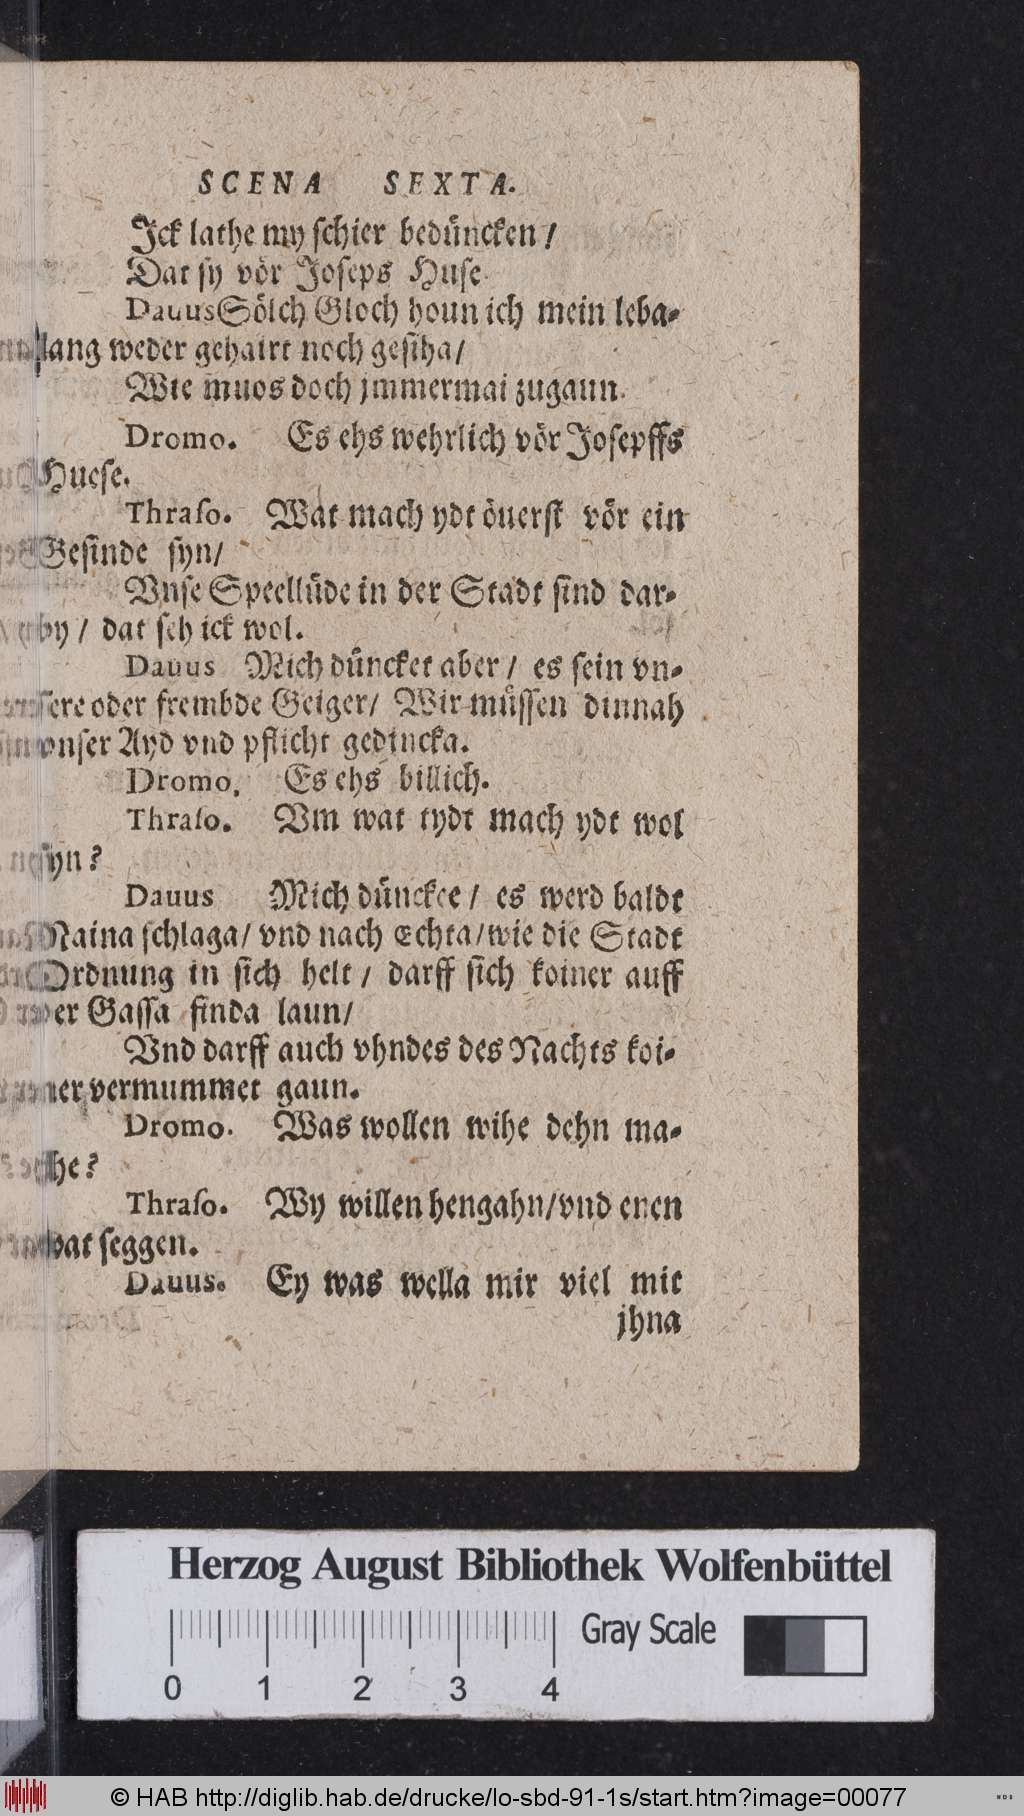 SCENA SEXTA.
Jck lathe my schier bedüncken /
Dat sy vör Joseps Huse.
Dauus Sölch Gloch houn ich mein leba-
lang weder gehairt noch gesiha /
Wie muos doch jmmermai zugaun.
Dromo. Es ehs wehrlich vör Josepffs
Huese.
Thraso. Wat mach ydt öuerst vör ein
Gesinde syn /
Vnse Speellüde in der Stadt sind dar-
by / dat seh ick wol.
Dauus Mich düncket aber / es sein vn-
sere oder frembde Geiger / Wir müssen dinnah
vnser Ayd vnd pflicht gedincka.
Dromo. Es ehs billich.
Thraso. Vm wat tydt mach ydt wol
syn?
Dauus Mich düncket / es werd baldt
Naina schlaga / vnd nach Echta / wie die Stadt
Ordnung in sich helt / darff sich koiner auff
der Gassa finda laun /
Vnd darff auch vhndes des Nachts koi-
ner vermummet gaun.
Dromo. Was wollen wihe dehn ma-
he?
Thraso. Wy willen hengahn / vnd enen
wat seggen.
Dauus. Ey was wella mir viel mit
jhna
Herzog August Bibliothek Wolfenbüttel
0 1 2 3 4 Gray Scale
© HAB http://diglib.hab.de/drucke/lo-sbd-91-1s/start.htm?image=00077